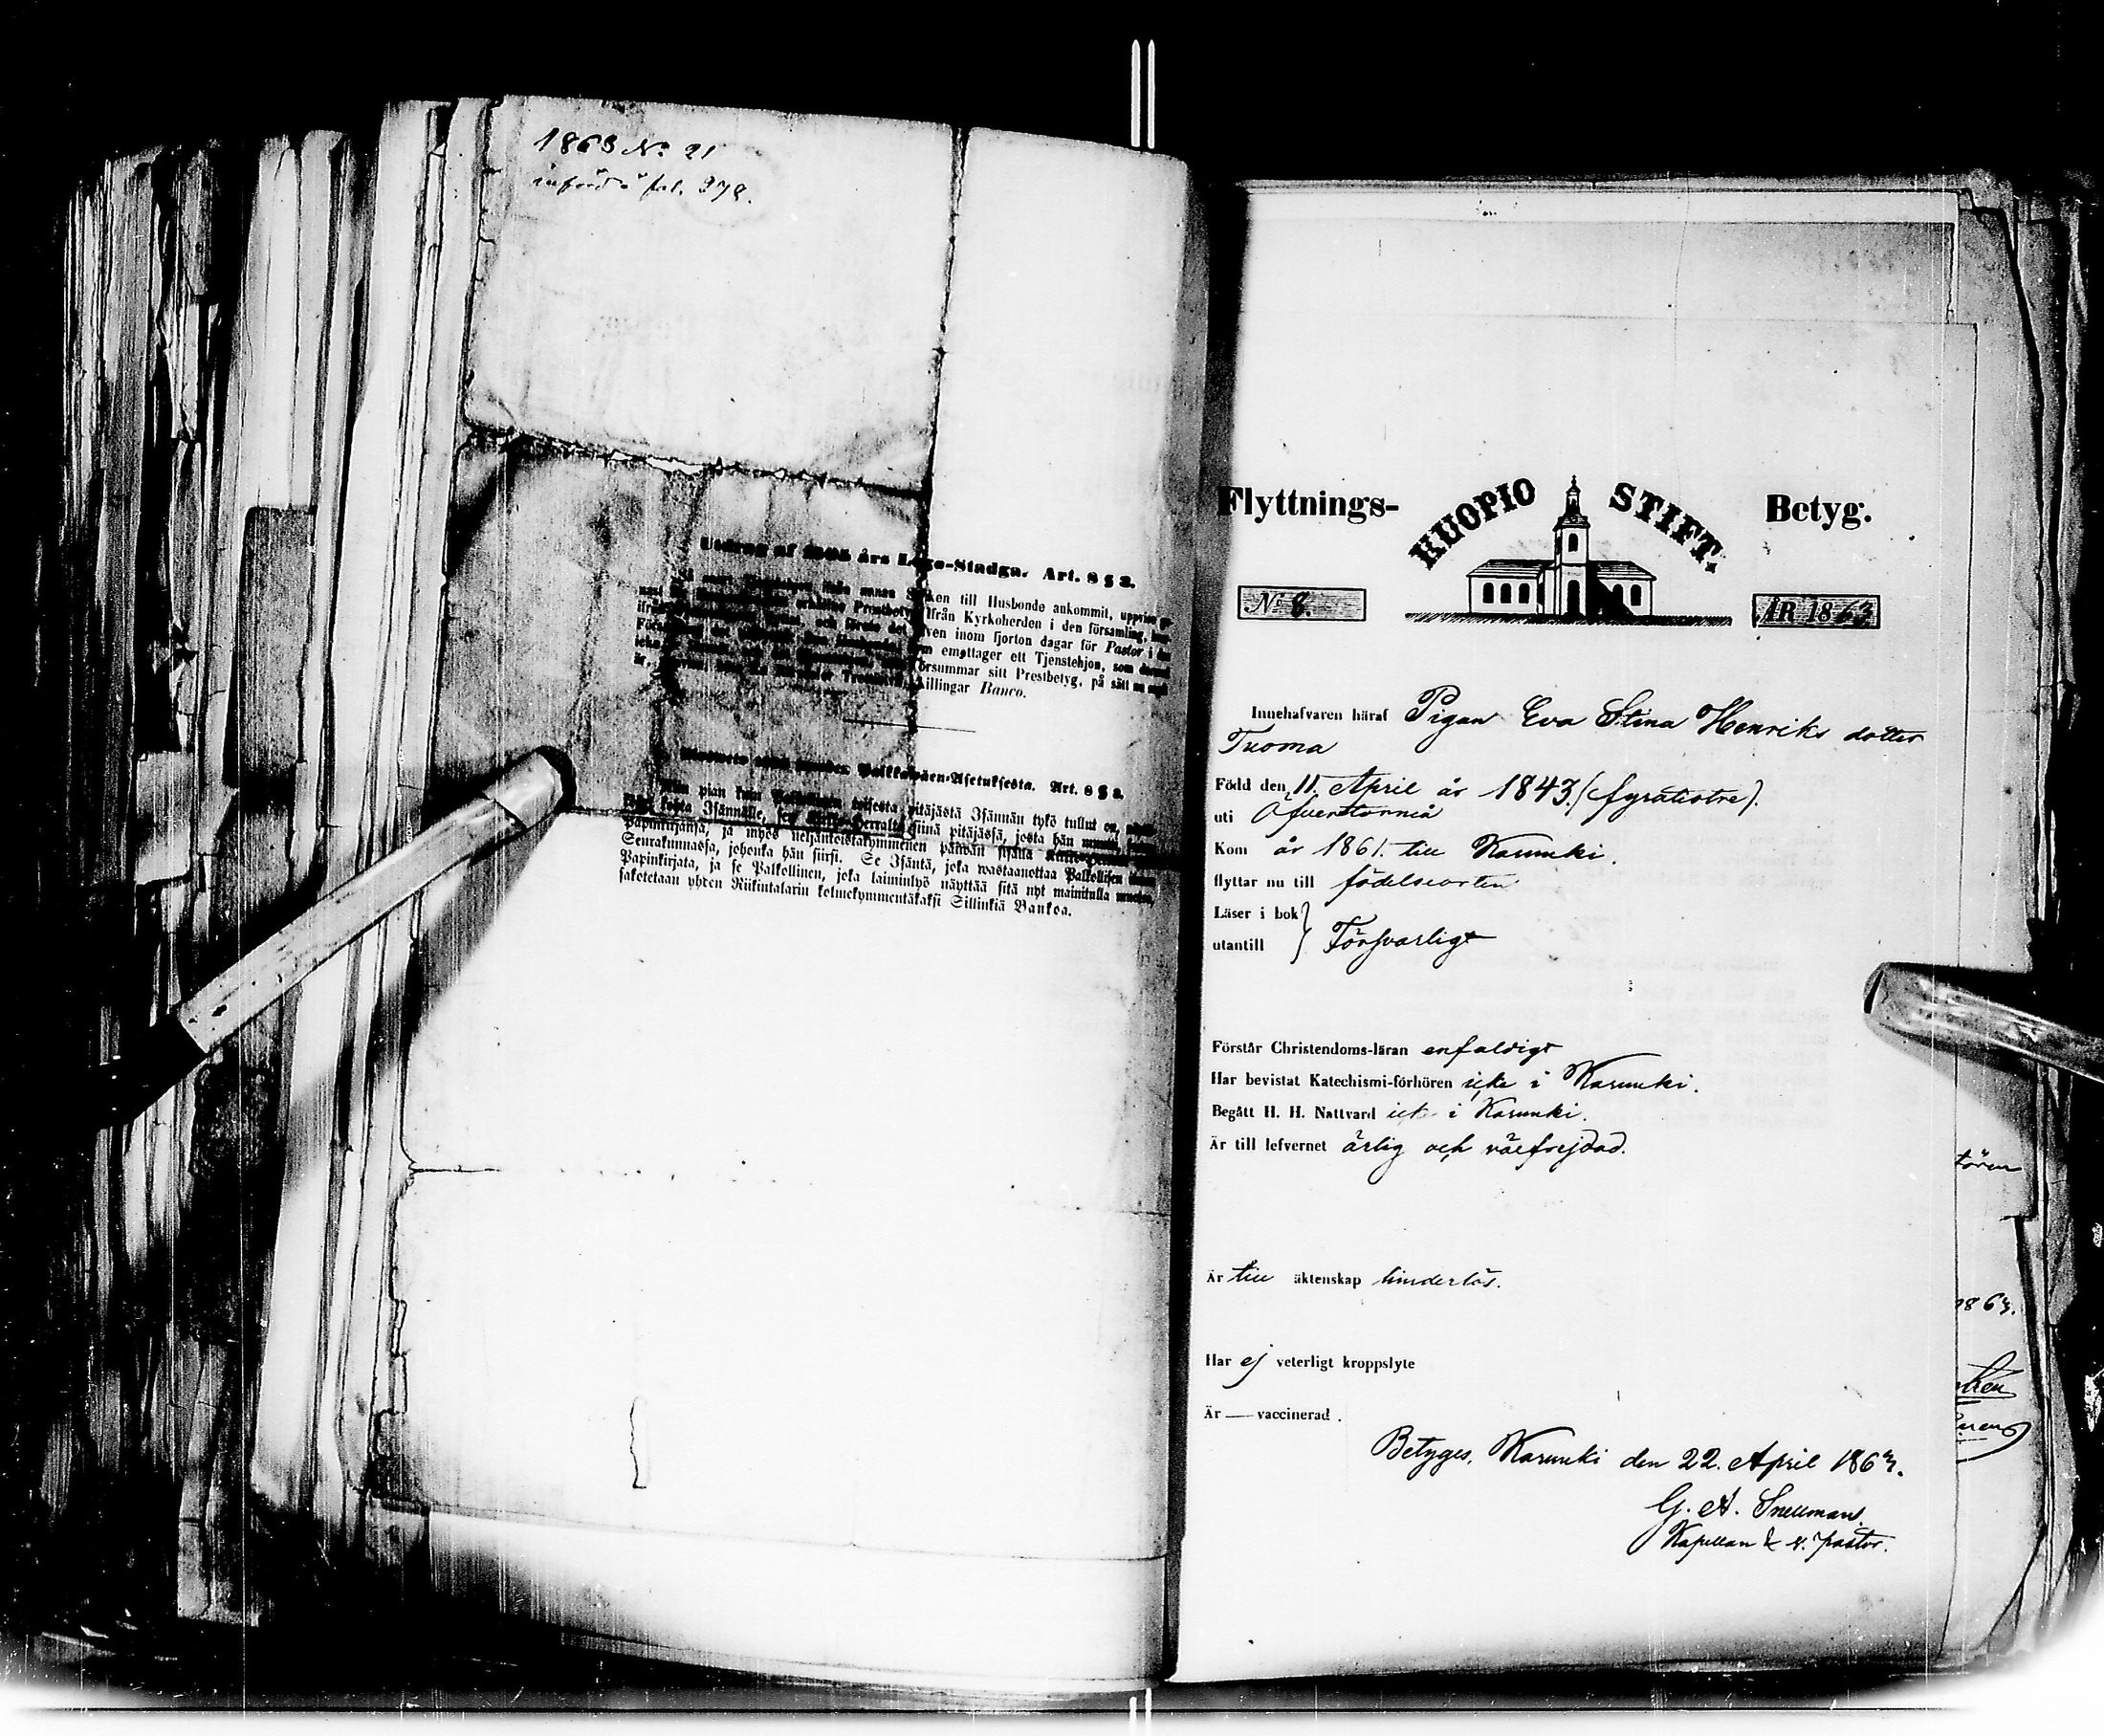 1863 No 21
införd å fol. 378.
Utdrag af 1805 års Lego-Stadga. Art. 8 § 2.
annan Socken till Husbonde ankommit, uppvise
Prestbetyg ifrån Kyrkoherden i den församling,
och förete det även inom fjorton dagar för Pastor i den
emottager ett Tjenstehjon, som
försummar sitt Prestbetyg, på sätt nu sagdt
är, Skillingar Banco.
Palkkawäen-Asetuksesta. Art. 8 § 2.
Niin pian kuin Palkollinen toisesta pitäjästä Isännän tykö tullut on,
kohta Isännälle, sen siinä pitäjässä, josta hän
Papinkirjansa, ja myös neljäntoistakymmenen päiwän sisällä
Seurakunnassa, johonka hän siirsi. Se Isäntä, joka wastaanottaa Palkollisen ilman
Papinkirjata, ja se Palkollinen, joka laiminlyö näyttää sitä nyt mainitulla muotoa,
sakotetaan yhden Riikintalarin kolmekymmentäkaksi Sillinkiä Bankoa.
Flyttnings- KUOPIO STIFT. Betyg.
No 8. ÅR 1863
Innehafvaren häraf Pigan Eva Stina Henriks dotter
Tuoma
Född den 11. April år 1843. (fyratiotre).
uti Öfvertorneå
Kom år 1861. till Karunki.
flyttar nu till födelseorten
Läser i bok
utantill } Försvarligt
Förstår Christendoms-läran enfaldigt
Har bevistat Katechismi-förhören icke i Karunki.
Begått H. H. Nattvard icke i Karunki.
Är till lefvernet ärlig och välfrejdad.
Är till äktenskap hinderlös.
Har ej veterligt kroppslyte
Är — vaccinerad.
Betyges, Karunki den 22. April 1863.
G. A. Snellman.
Kapellan & v. pastor.
1863.